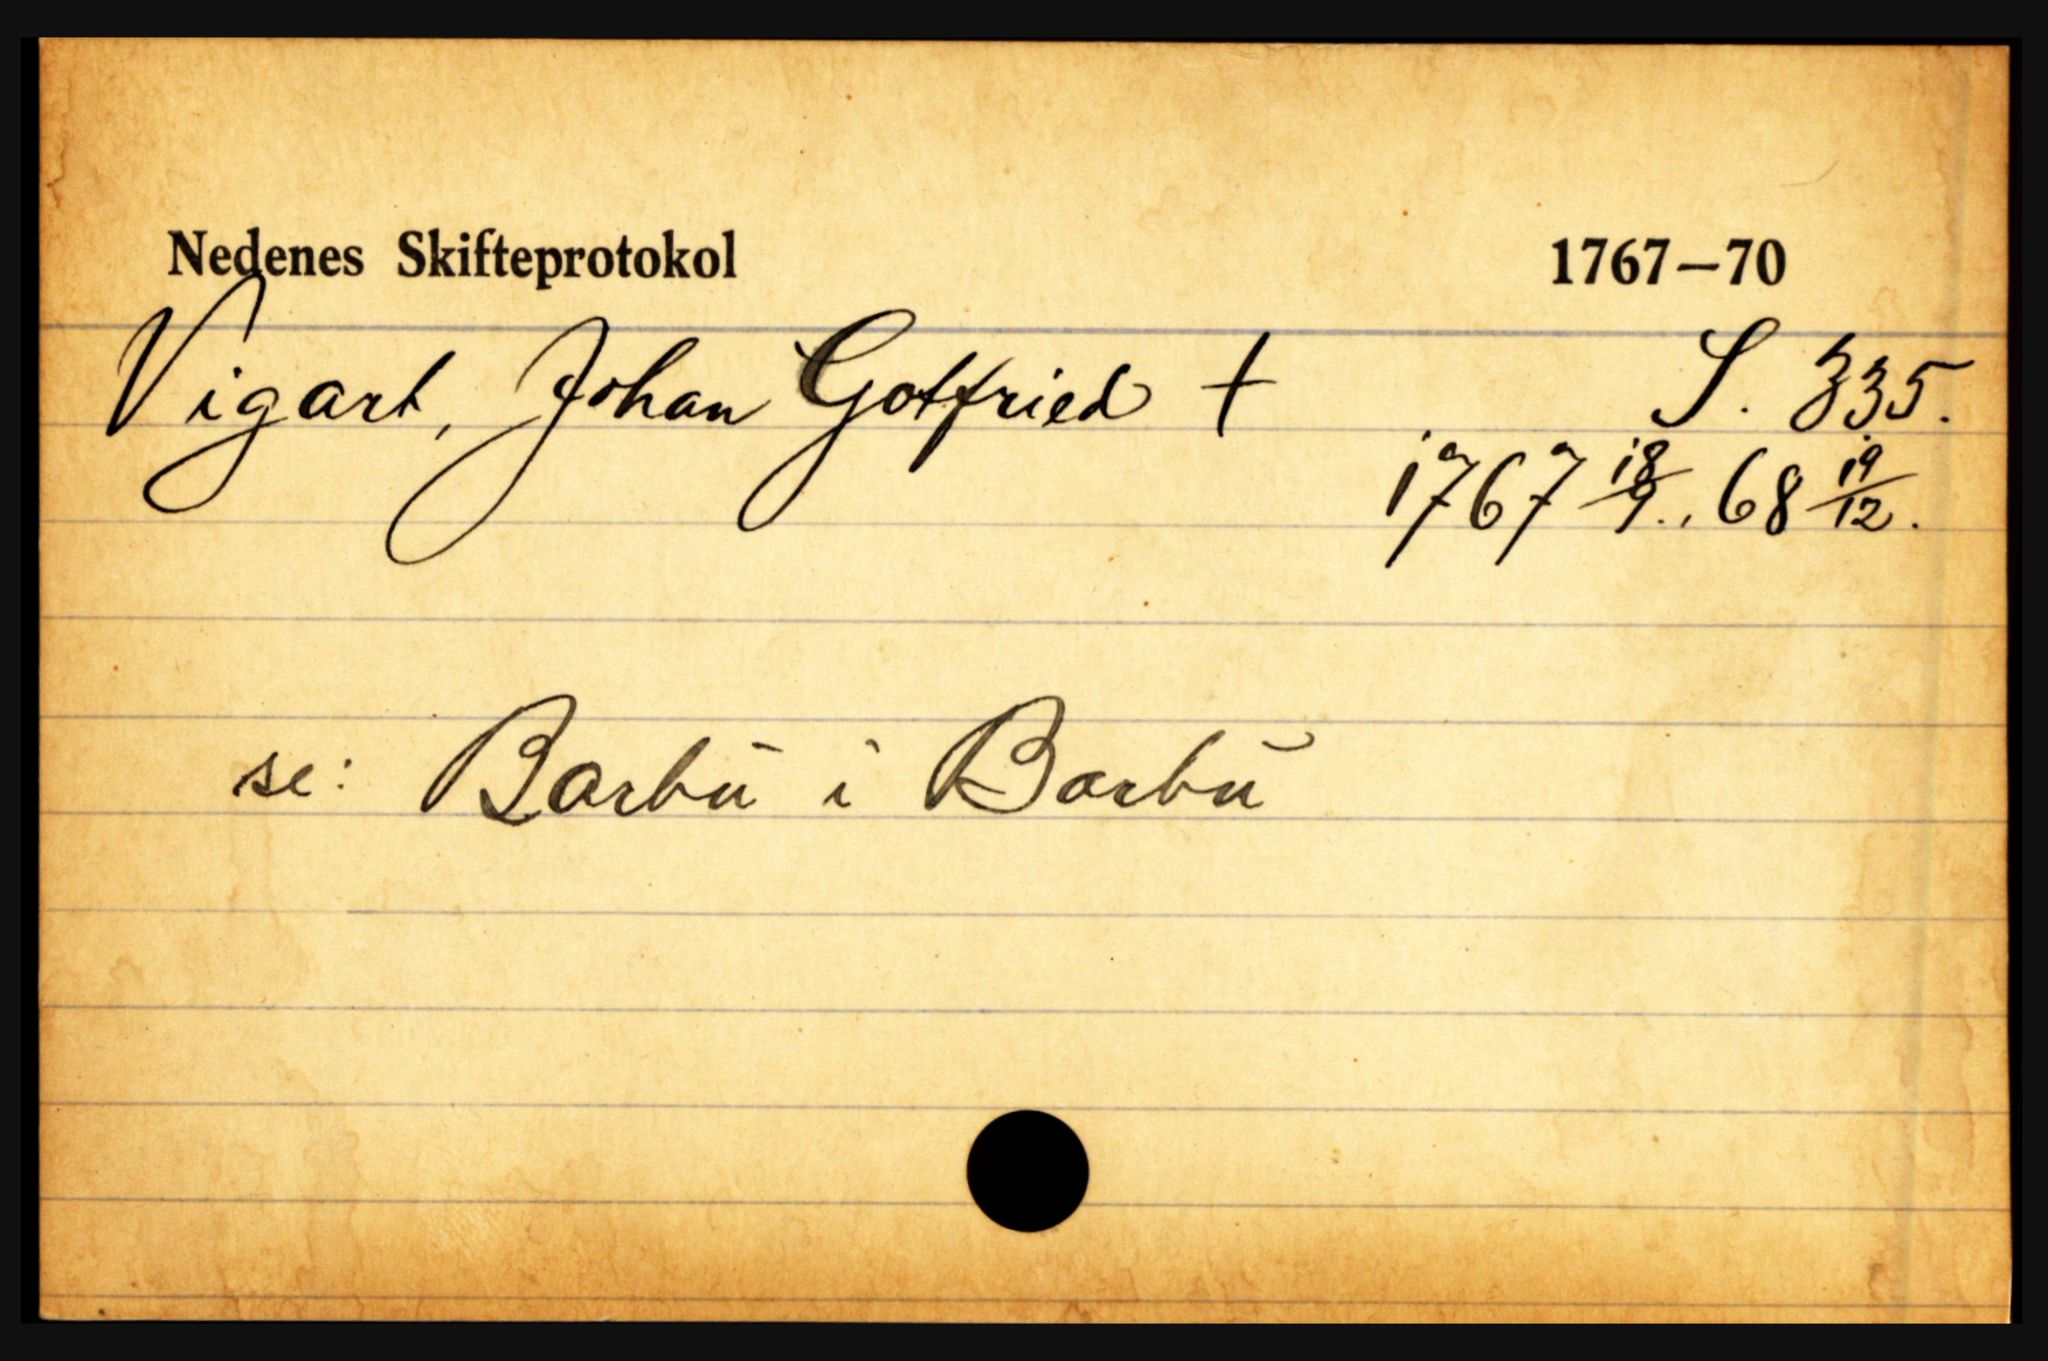 Nedenes Skifteprotokol 1767–70
Vigart, Johan Gotfried † S. 335.
1767 18/9., 68 19/12.
se: Barbu i Barbu